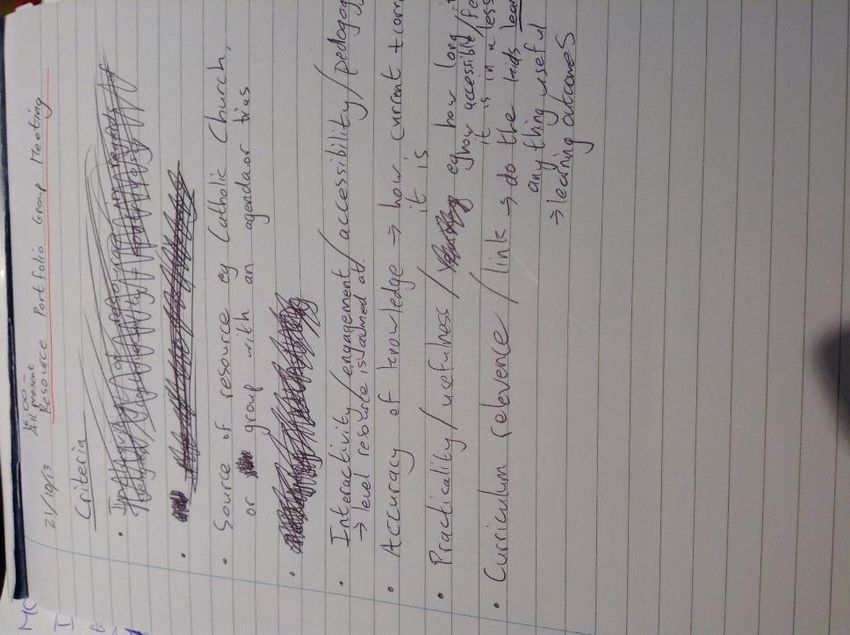 21/10/13
All present
Resource Portfolio Group Meeting
Criteria
• Source of resource eg Catholic Church,
or group with an agenda or bias
• Interactivity/engagement/accessibility/pedagog
→ level resource is aimed at
• Accuracy of knowledge → how current + corr
it is
• Practicality/usefulness/ eg how long
how accessible/
it is in a less
• Curriculum relevence/link → do the kids lea
any thing useful
→ learning outcomes